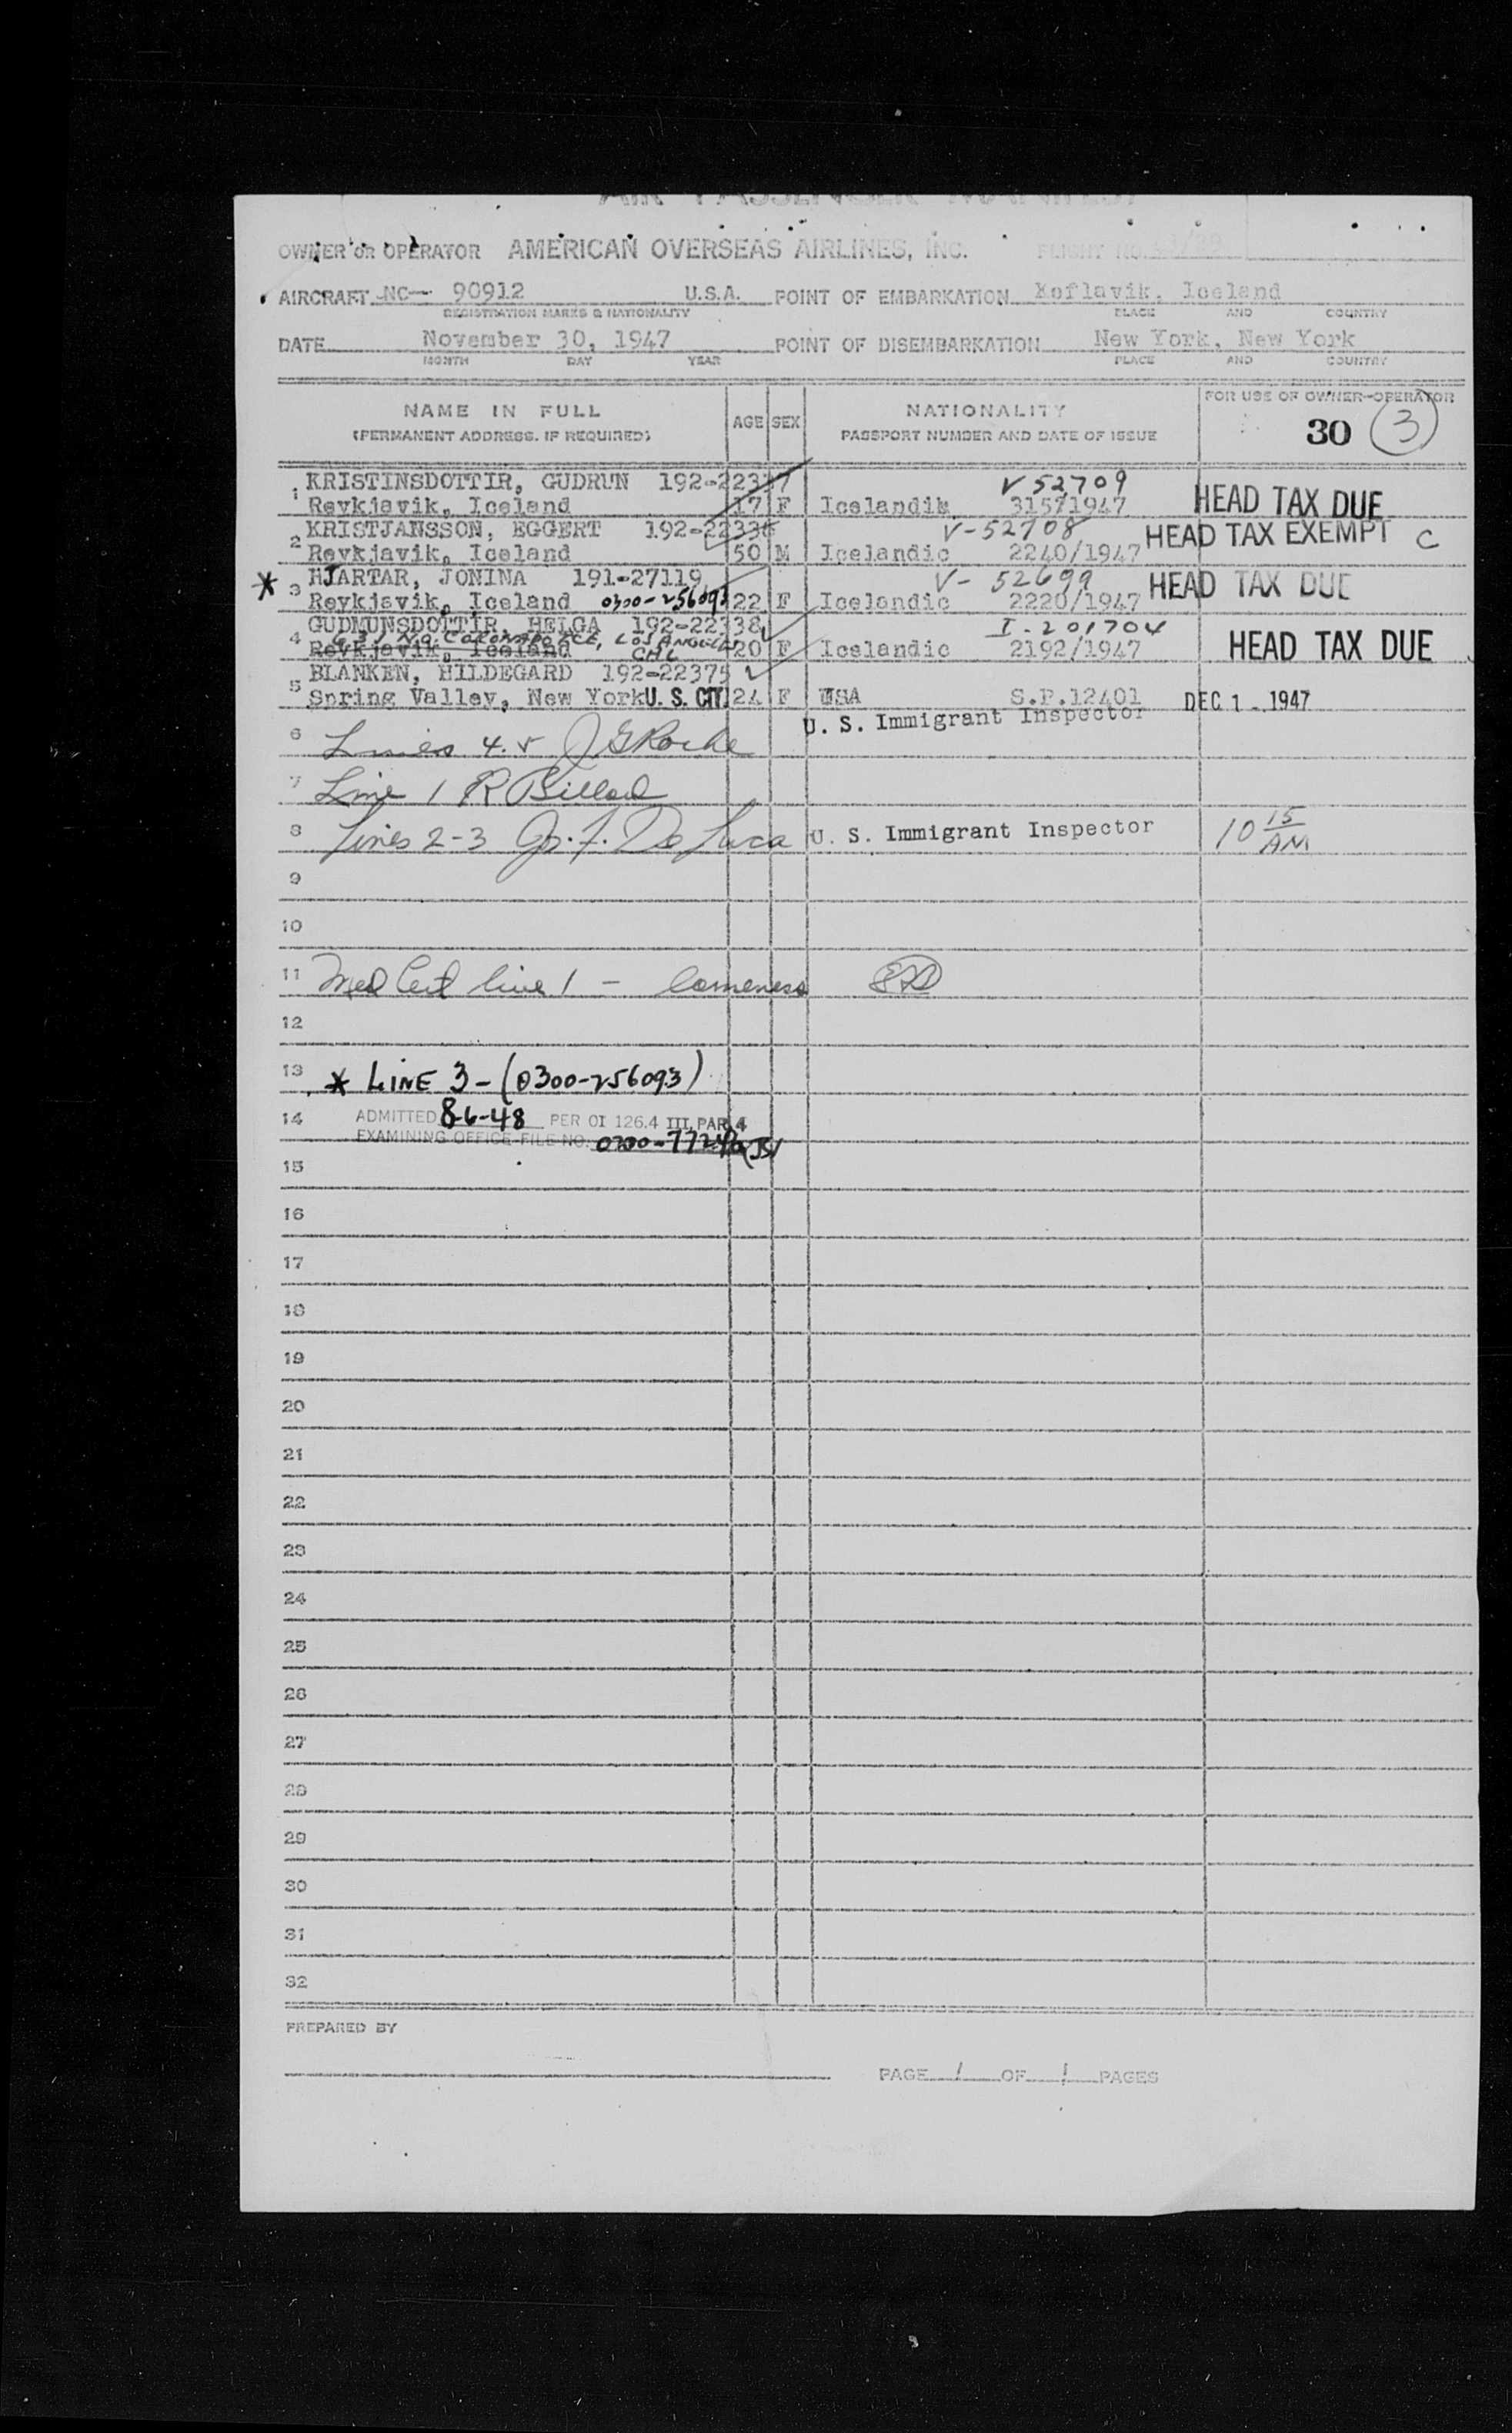 AIR PASSENGER MANIFEST
OWNER OR OPERATOR AMERICAN OVERSEAS AIRLINES, INC. FLIGHT NO.
AIRCRAFT NC— 90912 U.S.A. POINT OF EMBARKATION Keflavik, Iceland
REGISTRATION MARKS & NATIONALITY PLACE AND COUNTRY
DATE November 30, 1947 POINT OF DISEMBARKATION New York, New York
MONTH DAY YEAR PLACE AND COUNTRY
NAME IN FULL AGE SEX NATIONALITY FOR USE OF OWNER-OPERATOR
(PERMANENT ADDRESS, IF REQUIRED) PASSPORT NUMBER AND DATE OF ISSUE 30 3
1 KRISTINSDOTTIR, GUDRUN 192-22337 V 52709
Reykjavik, Iceland 17 F Icelandik 3157/1947 HEAD TAX DUE
2 KRISTJANSSON, EGGERT 192-22336 V-52708 HEAD TAX EXEMPT C
Reykjavik, Iceland 50 M Icelandic 2240/1947
* 3 HJARTAR, JONINA 191-27119 V- 52699 HEAD TAX DUE
Reykjavik, Iceland 0300-256093 22 F Icelandic 2220/1947
4 GUDMUNSDOTTIR, HELGA 192-22338 I-201704
631 No. COLORADO PCE, LOS ANGELES
Reykjavik, Iceland 20 F Icelandic 2192/1947 HEAD TAX DUE
BLANKEN, HILDEGARD 192-22375
5 Spring Valley, New York U. S. CIT 24 F USA S.P.12401 DEC 1 - 1947
U. S. Immigrant Inspector
6 Lines 4.5 J G Roche
7 Line 1 R Billad
8 Lines 2-3 Jos. F. De Luca U. S. Immigrant Inspector 10 15 AM
9
10
11 Med Cert line 1 - lameness
12
13 * LINE 3 - (0300-256093)
14 ADMITTED 8-6-48 PER OI 126.4 III, PAR 4
EXAMINING OFFICE FILE NO.
15
16
17
18
19
20
21
22
23
24
25
26
27
28
29
30
31
32
PREPARED BY
PAGE 1 OF 1 PAGES